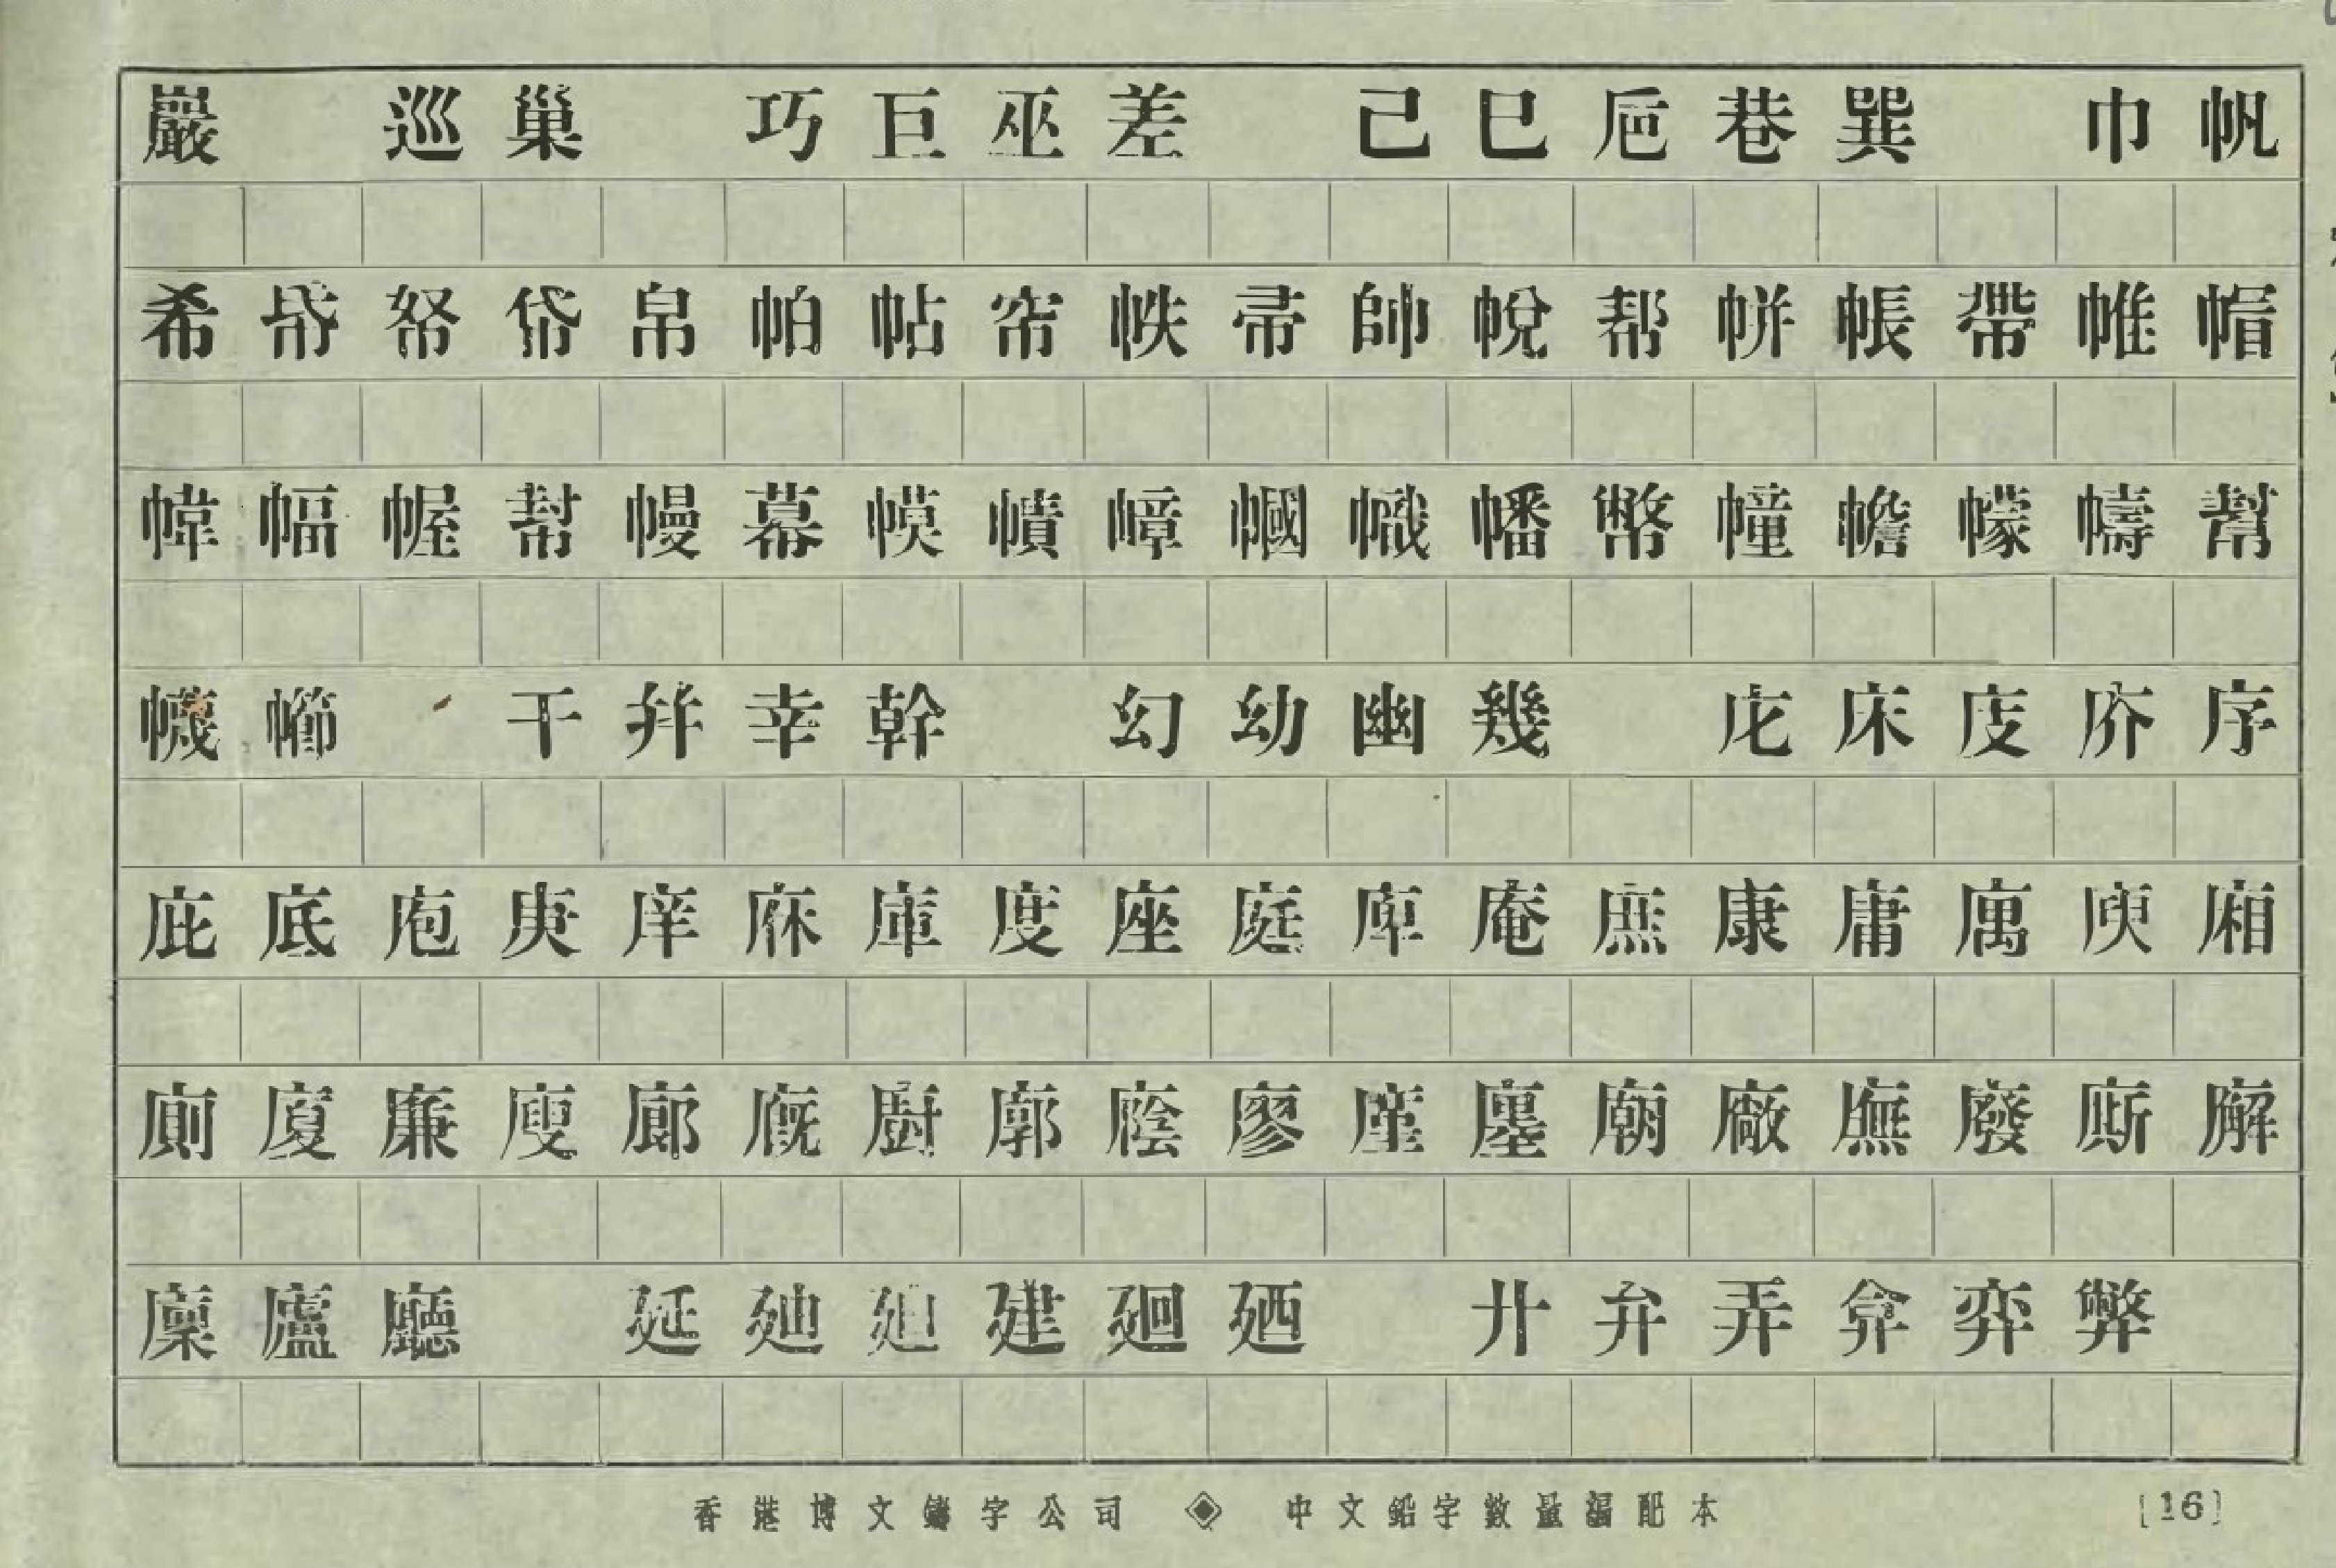 巖 巡 巢 巧 巨 巫 差 己 巳 巵 巷 巽 巾 帆
希 帋 帑 帒 帛 帕 帖 帘 帙 帚 帥 帨 帮 帲 帳 帶 帷 帽
幃 幅 幄 幇 幔 幕 幙 幘 幛 幗 幟 幡 幣 幢 幨 幪 幬 幫
幭 幯 干 并 幸 幹 幻 幼 幽 幾 庀 床 庋 庎 序
庇 底 庖 庚 庠 庥 庫 度 座 庭 庵 庶 康 庸 庽 庾 廂
廁 廈 廉 廋 廊 廐 廚 廓 廕 廖 廑 廛 廟 廠 廡 廢 廝 廨
廩 廬 廳 延 廸 建 廻 廼 廾 弁 弄 弇 弈 弊
香港博文鑄字公司 ◈ 中文鉛字數量編配本 [16]